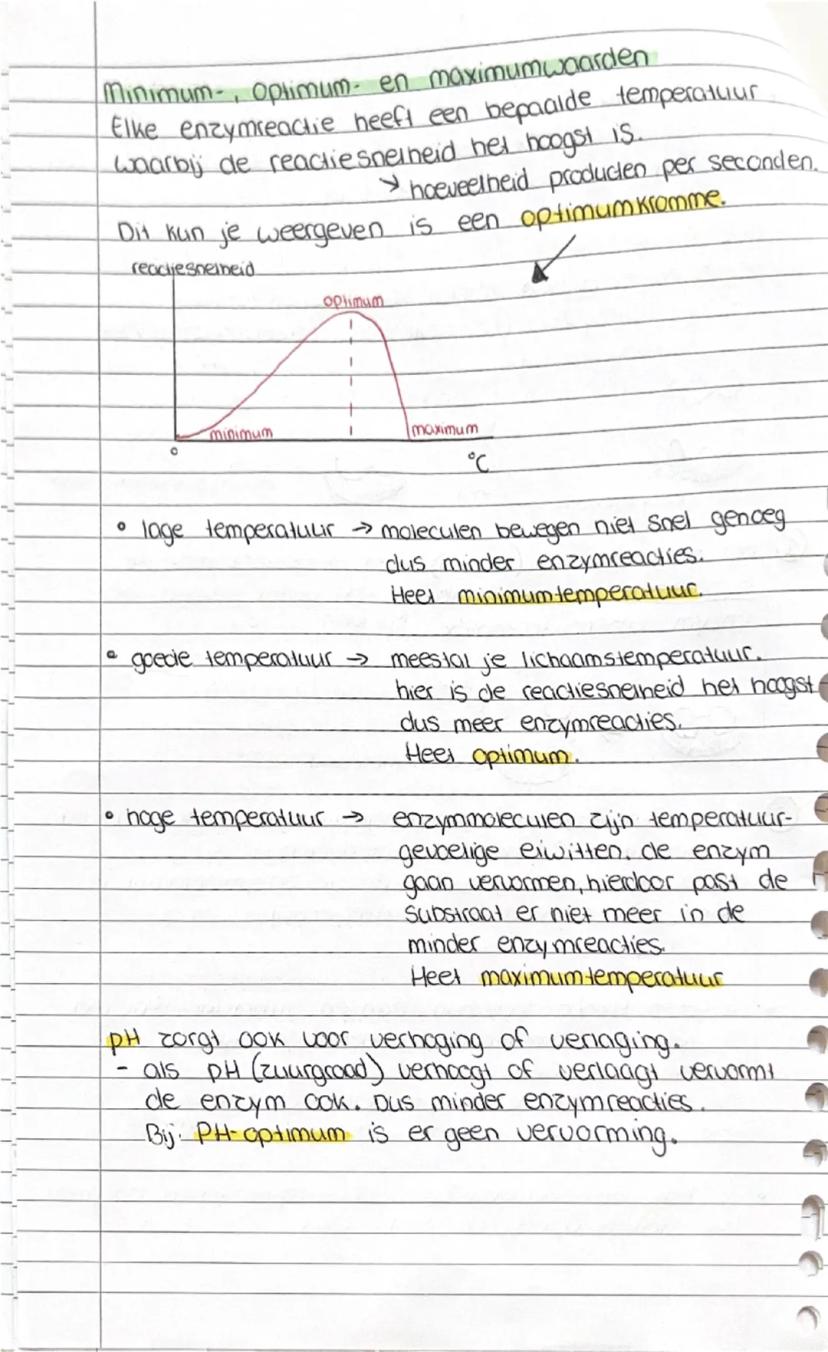 Minimum-, optimum- en maximumwaarden
Elke enzymreactie heeft een bepaalde temperatuur
waarbij de reactiesnelheid het hoogst is.
→ hoeveelheid producten per seconden.
Dit kun je weergeven is een optimumkromme.
reactiesnelheid
optimum
minimum
maximum
0
°C
• lage temperatuur → moleculen bewegen niet snel genoeg
dus minder enzymreacties.
Heet minimumtemperatuur.
• goede temperatuur → meestal je lichaamstemperatuur.
hier is de reactiesnelheid het hoogst
dus meer enzymreacties.
Heet optimum.
• hoge temperatuur → enzymmoleculen zijn temperatuur-
gevoelige eiwitten. de enzym
gaan vervormen, hierdoor past de
substraat er niet meer in de
minder enzymreacties.
Heet maximumtemperatuur
pH zorgt ook voor verhoging of verlaging.
- als pH (zuurgraad) verhoogt of verlaagt vervormt
de enzym ook. Dus minder enzymreacties.
Bij PH-optimum is er geen vervorming.